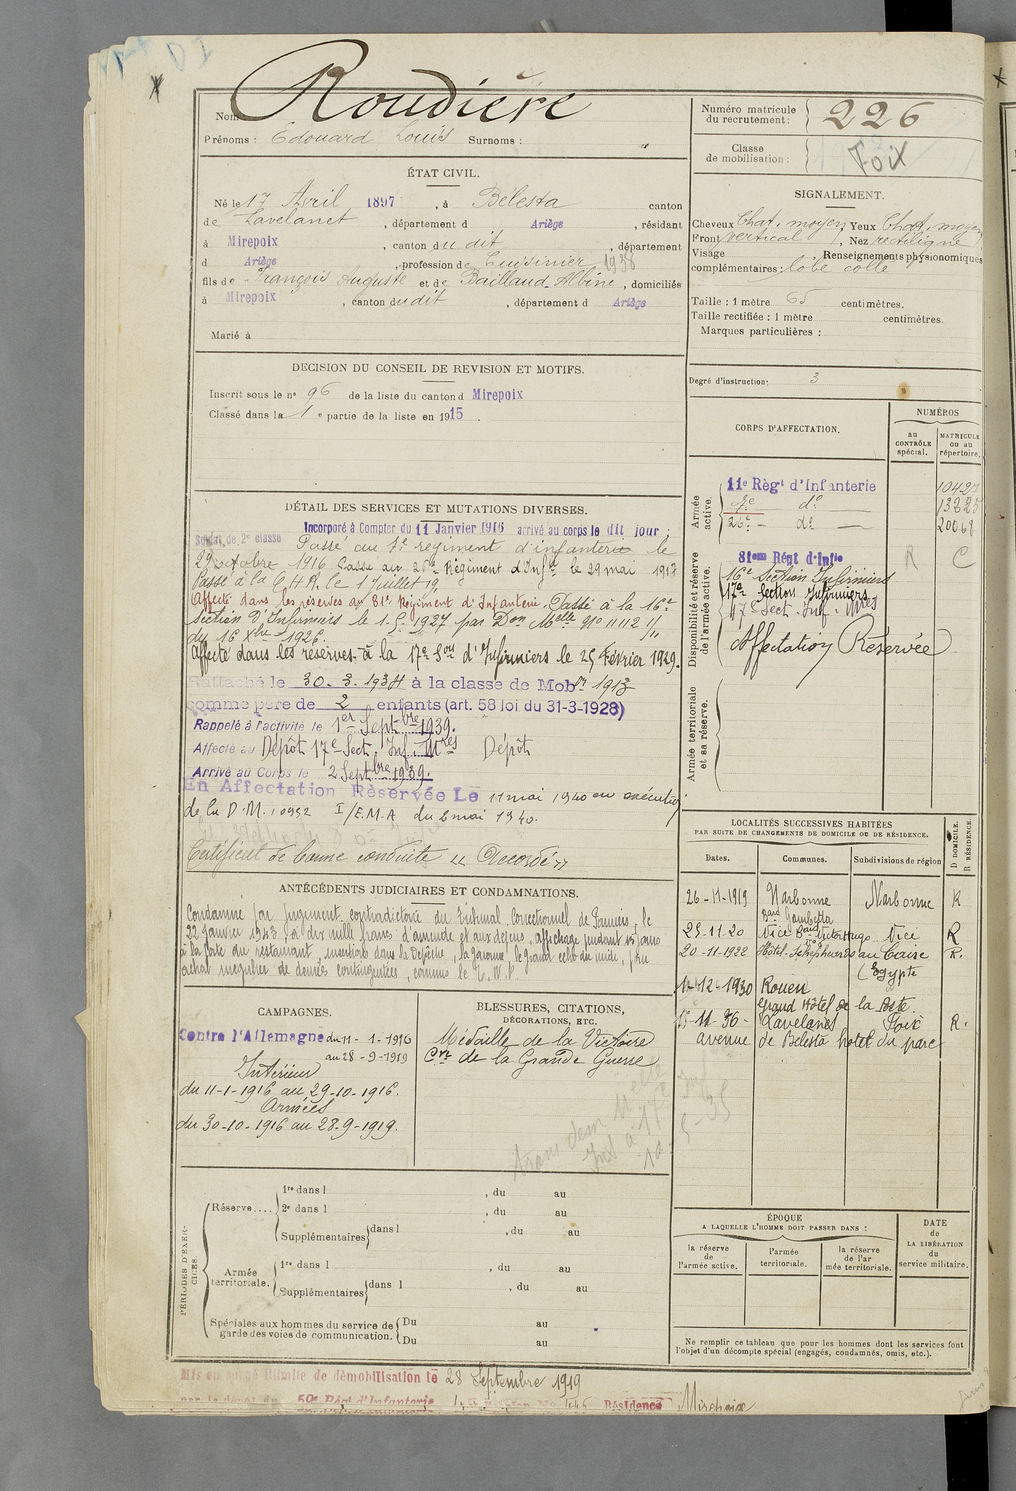 Nom Roudière
Prénoms : Edouard Louis Surnoms : "
Numéro matricule du recrutement : 226
Classe de mobilisation :
Foix
ÉTAT CIVIL.
Né le 17 Avril 1897, à Bélesta canton
de Lavelanet, département d Ariège, résidant
à Mirepoix, canton du dit, département
d Ariège, profession de Cuisinier 1938
fils de François Auguste et de Baillaud Albine, domiciliés
à Mirepoix, canton du dit, département d Ariège
Marié à
SIGNALEMENT.
Cheveux Chat. moyen, Yeux Chat. moyen
Front vertical, Nez rectiligne
Visage Renseignements physionomiques
complémentaires : lobe collé
Taille : 1 mètre 65 centimètres.
Taille rectifiée : 1 mètre centimètres.
Marques particulières :
Degré d'instruction : 3
DÉCISION DU CONSEIL DE REVISION ET MOTIFS.
Inscrit sous le n° 96 de la liste du canton d Mirepoix
Classé dans la 1e partie de la liste en 1915.
DÉTAIL DES SERVICES ET MUTATIONS DIVERSES.
Incorporé à Compter du 11 Janvier 1916 arrivé au corps le dit jour ;
Soldat de 2e classe Passé au 7e régiment d'infanterie le
29 octobre 1916 Passé au 26e Régiment d'Inf'ie le 29 mai 1917
Passé à la C.H.R. le 1 Juillet 19
Affecté dans les réserves au 81e Régiment d'Infanterie. Passé à la 16e
Section d'Infirmiers le 1.5.1927 par Don Melle N° 11112 1/11
du 16 Xbre 1926.
Affecté dans les réserves à la 17e Son d'Infirmiers le 25 Février 1929.
Rattaché le 30.3.1934 à la classe de Mobon 1913
comme père de 2 enfants (art. 58 loi du 31-3-1928)
Rappelé à l'activité le 1er Septbre 1939.
Affecté au Dépôt 17e Sect. Inf. Mres Dépôt
Arrivé au Corps le 2 Septbre 1939.
En Affectation Réservée Le 11 mai 1940 en exécution
de la D.M. 10952 I/E.M.A du 2 mai 1940.
Certificat de bonne conduite « Accordé »
CORPS D'AFFECTATION.
NUMÉROS
au CONTRÔLE spécial.
MATRICULE ou au répertoire.
Armée active.
11e Régt d'Infanterie 10427
7e — do — 13225
26e — do — 20068
Disponibilité et réserve de l'armée active.
81em Régt d'Infie R C
16e Section Infirmiers
17e Section Infirmiers
17e Sect. Inf. Mres
Affectation Réservée
Armée territoriale et sa réserve.
ANTÉCÉDENTS JUDICIAIRES ET CONDAMNATIONS.
Condamné par jugement contradictoire du Tribunal Correctionnel de Pamiers, le
22 janvier 1943, à dix mille francs d'amende et aux dépens, affichage pendant 15 jours
à la porte du restaurant, insertions dans la Dépêche, la Garonne, le grand écho du midi, pour
achat irrégulier de denrées contingentées,
LOCALITÉS SUCCESSIVES HABITÉES
PAR SUITE DE CHANGEMENTS DE DOMICILE OU DE RÉSIDENCE.
Dates. Communes. Subdivisions de région D DOMICILE. R RÉSIDENCE.
26-11-1919 Narbonne Narbonne R
Bd Gambetta
25-11-20 Nice Bd Victor Hugo Nice R
20-11-1922 Hôtel Shepheards au Caire R.
(Egypte
12-1930 Rouen
Grand Hôtel de la Poste
11-36- Lavelanet Foix R.
avenue de Bélesta hôtel du parc
CAMPAGNES.
Contre l'Allemagne du 11-1-1916
au 28-9-1919
Intérieur
du 11-1-1916 au 29-10-1916.
Armées
du 30-10-1916 au 28-9-1919.
BLESSURES, CITATIONS,
DÉCORATIONS, ETC.
Médaille de la Victoire
Cve de la Grande Guerre
PÉRIODES D'EXERCICES.
Réserve....
1re dans l , du au
2e dans l , du au
Supplémentaires dans l , du au
Armée territoriale.
1re dans l , du au
Supplémentaires dans l , du au
Spéciales aux hommes du service de garde des voies de communication.
Du au
Du au
ÉPOQUE
A LAQUELLE L'HOMME DOIT PASSER DANS :
la réserve de l'armée active.
l'armée territoriale.
la réserve de l'armée territoriale.
DATE de LA LIBÉRATION du service militaire.
Ne remplir ce tableau que pour les hommes dont les services font
l'objet d'un décompte spécial (engagés, condamnés, omis, etc.).
Mis en congé illimité de démobilisation le 28 Septembre 1919
par le dépôt du 59e Régt d'Infanterie Résidence Mirepoix